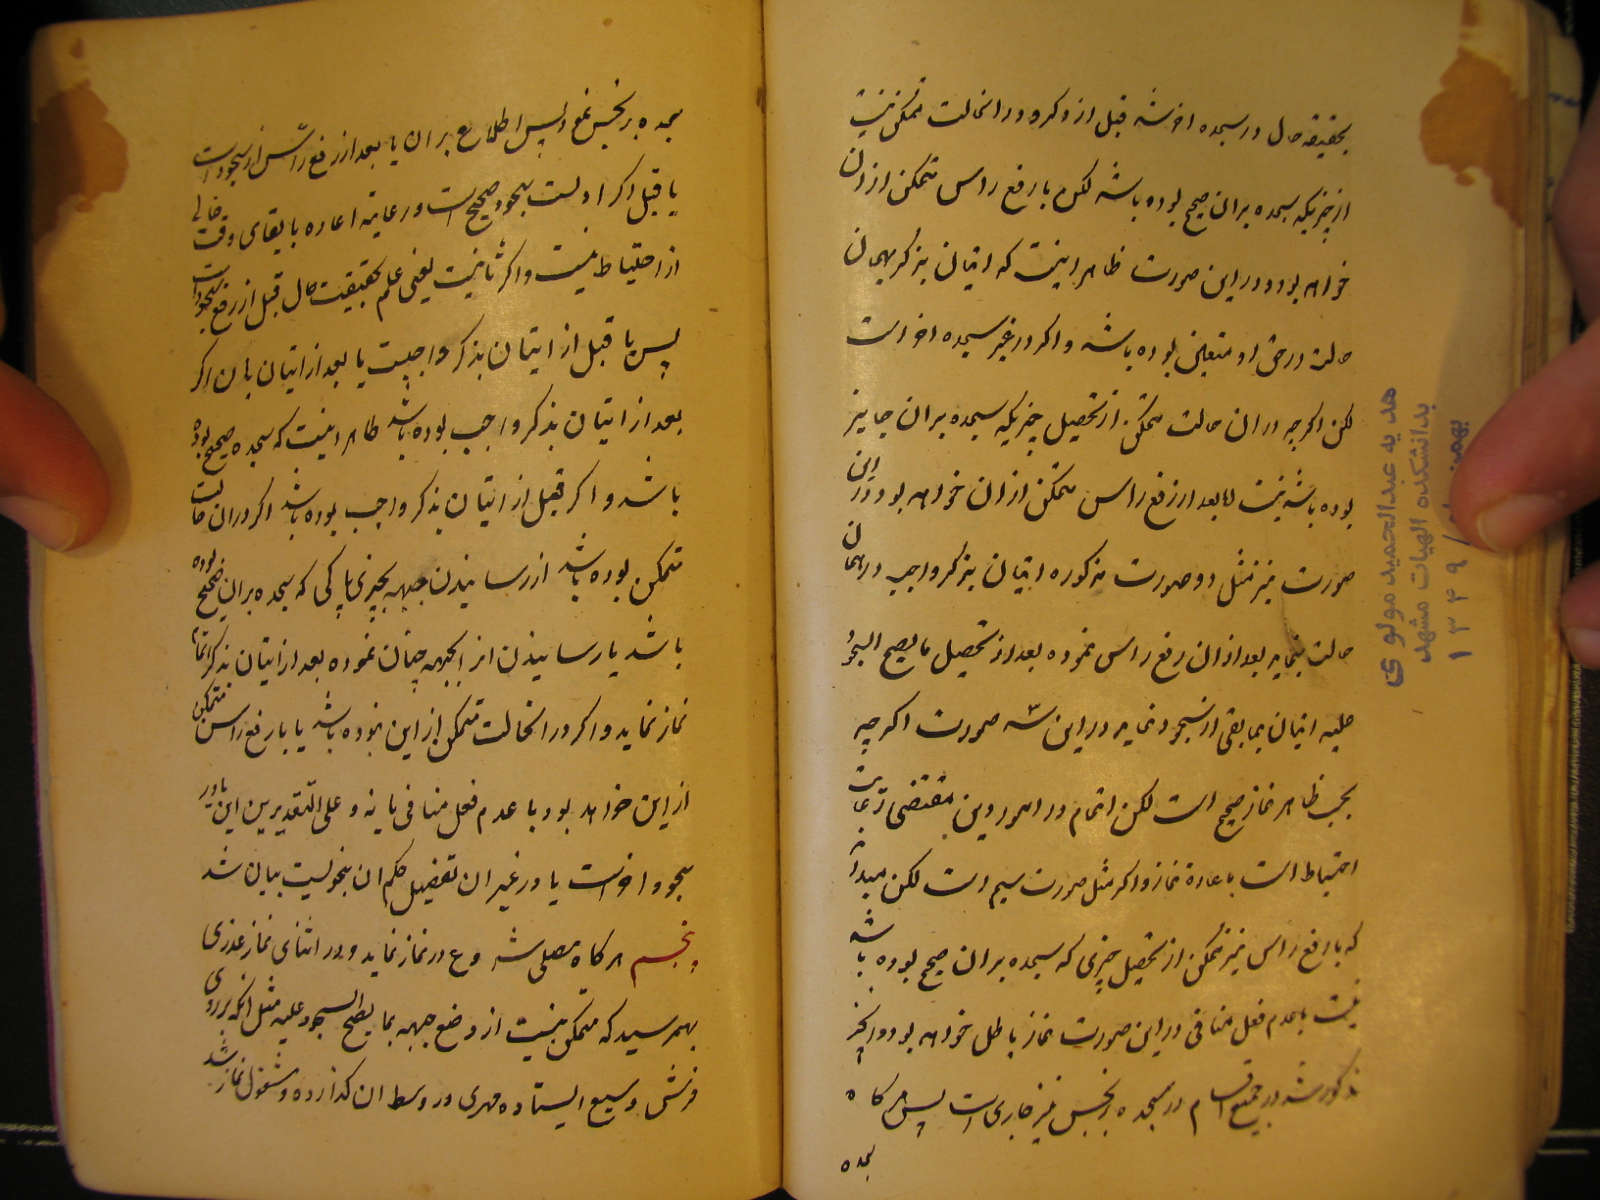 بحقیقه حال در سجده اخر شد قبل از ذکر و در انحالت متمکن نیست
از چیزیکه سجده بران صحیح بوده باشد لکن با رفع راس متمکن از ان
خواهد بود و در این صورت ظاهر اینست که اتیان بذکر بهمان
حالت در حق او متعین بوده باشد و اکر در غیر سجده اخر است
لکن اکر چه در ان حالت متمکن از تحصیل چیزیکه سجده بران جایز
بوده باشد نیست لکن بعد از رفع راس متمکن از ان خواهد بود در این
صورت نیز مثل دو صورت مذکوره اتیان بذکر واجب در همان
حالت بنماید بعد از ان رفع راس نموده بعد از تحصیل ما یصح السجود
علیه اتیان بما بقی از سجود نماید در این سه صورت اکر چه
بحسب ظاهر نماز صحیح است لکن اهتمام در امور دین مقتضی رعایت
احتیاط است باعاده نماز و اکر مثل صورت سیم است لکن میداند
که با رفع راس نیز متمکن از تحصیل چیزی که سجده بران صحیح بوده باشد
نیست با عدم فعل منافی در این صورت نماز باطل خواهد بود و انچه
مذکور شد در جمیع اقسام در سجده بر نجس نیز جاری است پس هر کاه
سجده
هدیه عبدالحمید مولوی
بدانشکده الهیات مشهد
بهمن
۱۳۴۹
سجده بر نجس نمود پس اطلاع بران یا بعد از رفع راس از سجود است
یا قبل اکر اولست سجود صحیح است و رعایت اعاده با بقای وقت خالی
از احتیاط نیست و اکر ثانیست یعنی علم بحقیقت حال قبل از رفع سجود است
پس یا قبل از اتیان بذکر واجبست یا بعد از اتیان بان اکر
بعد از اتیان بذکر واجب بوده باشد ظاهر اینست که سجده صحیح بوده
باشد و اکر قبل از اتیان بذکر واجب بوده باشد اکر در ان حالت
متمکن بوده باشد از رسانیدن جبهه بچیزی پاکی که سجده بران صحیح بوده
باشد یا رسانیدن از جبهه چنان نموده بعد از اتیان بذکر اتمام
نماز نماید و اکر در انحالت متمکن از این نبوده باشد یا با رفع راس متمکن
از این خواهد بود با عدم فعل منافی یا نه و علی التقدیرین این یا در
سجود اخر است یا در غیر ان تفصیل حکم ان بنحویست بیان شد
پنجم هر کاه مصلی شروع در نماز نماید و در اثنای نماز عذری
بهمرسید که متمکن نیست از وضع جبهه بما یصح السجود علیه مثل انکه بر روی
فرش وسیع ایستاده مهری در وسط ان کذارده و مشغول نماز شد